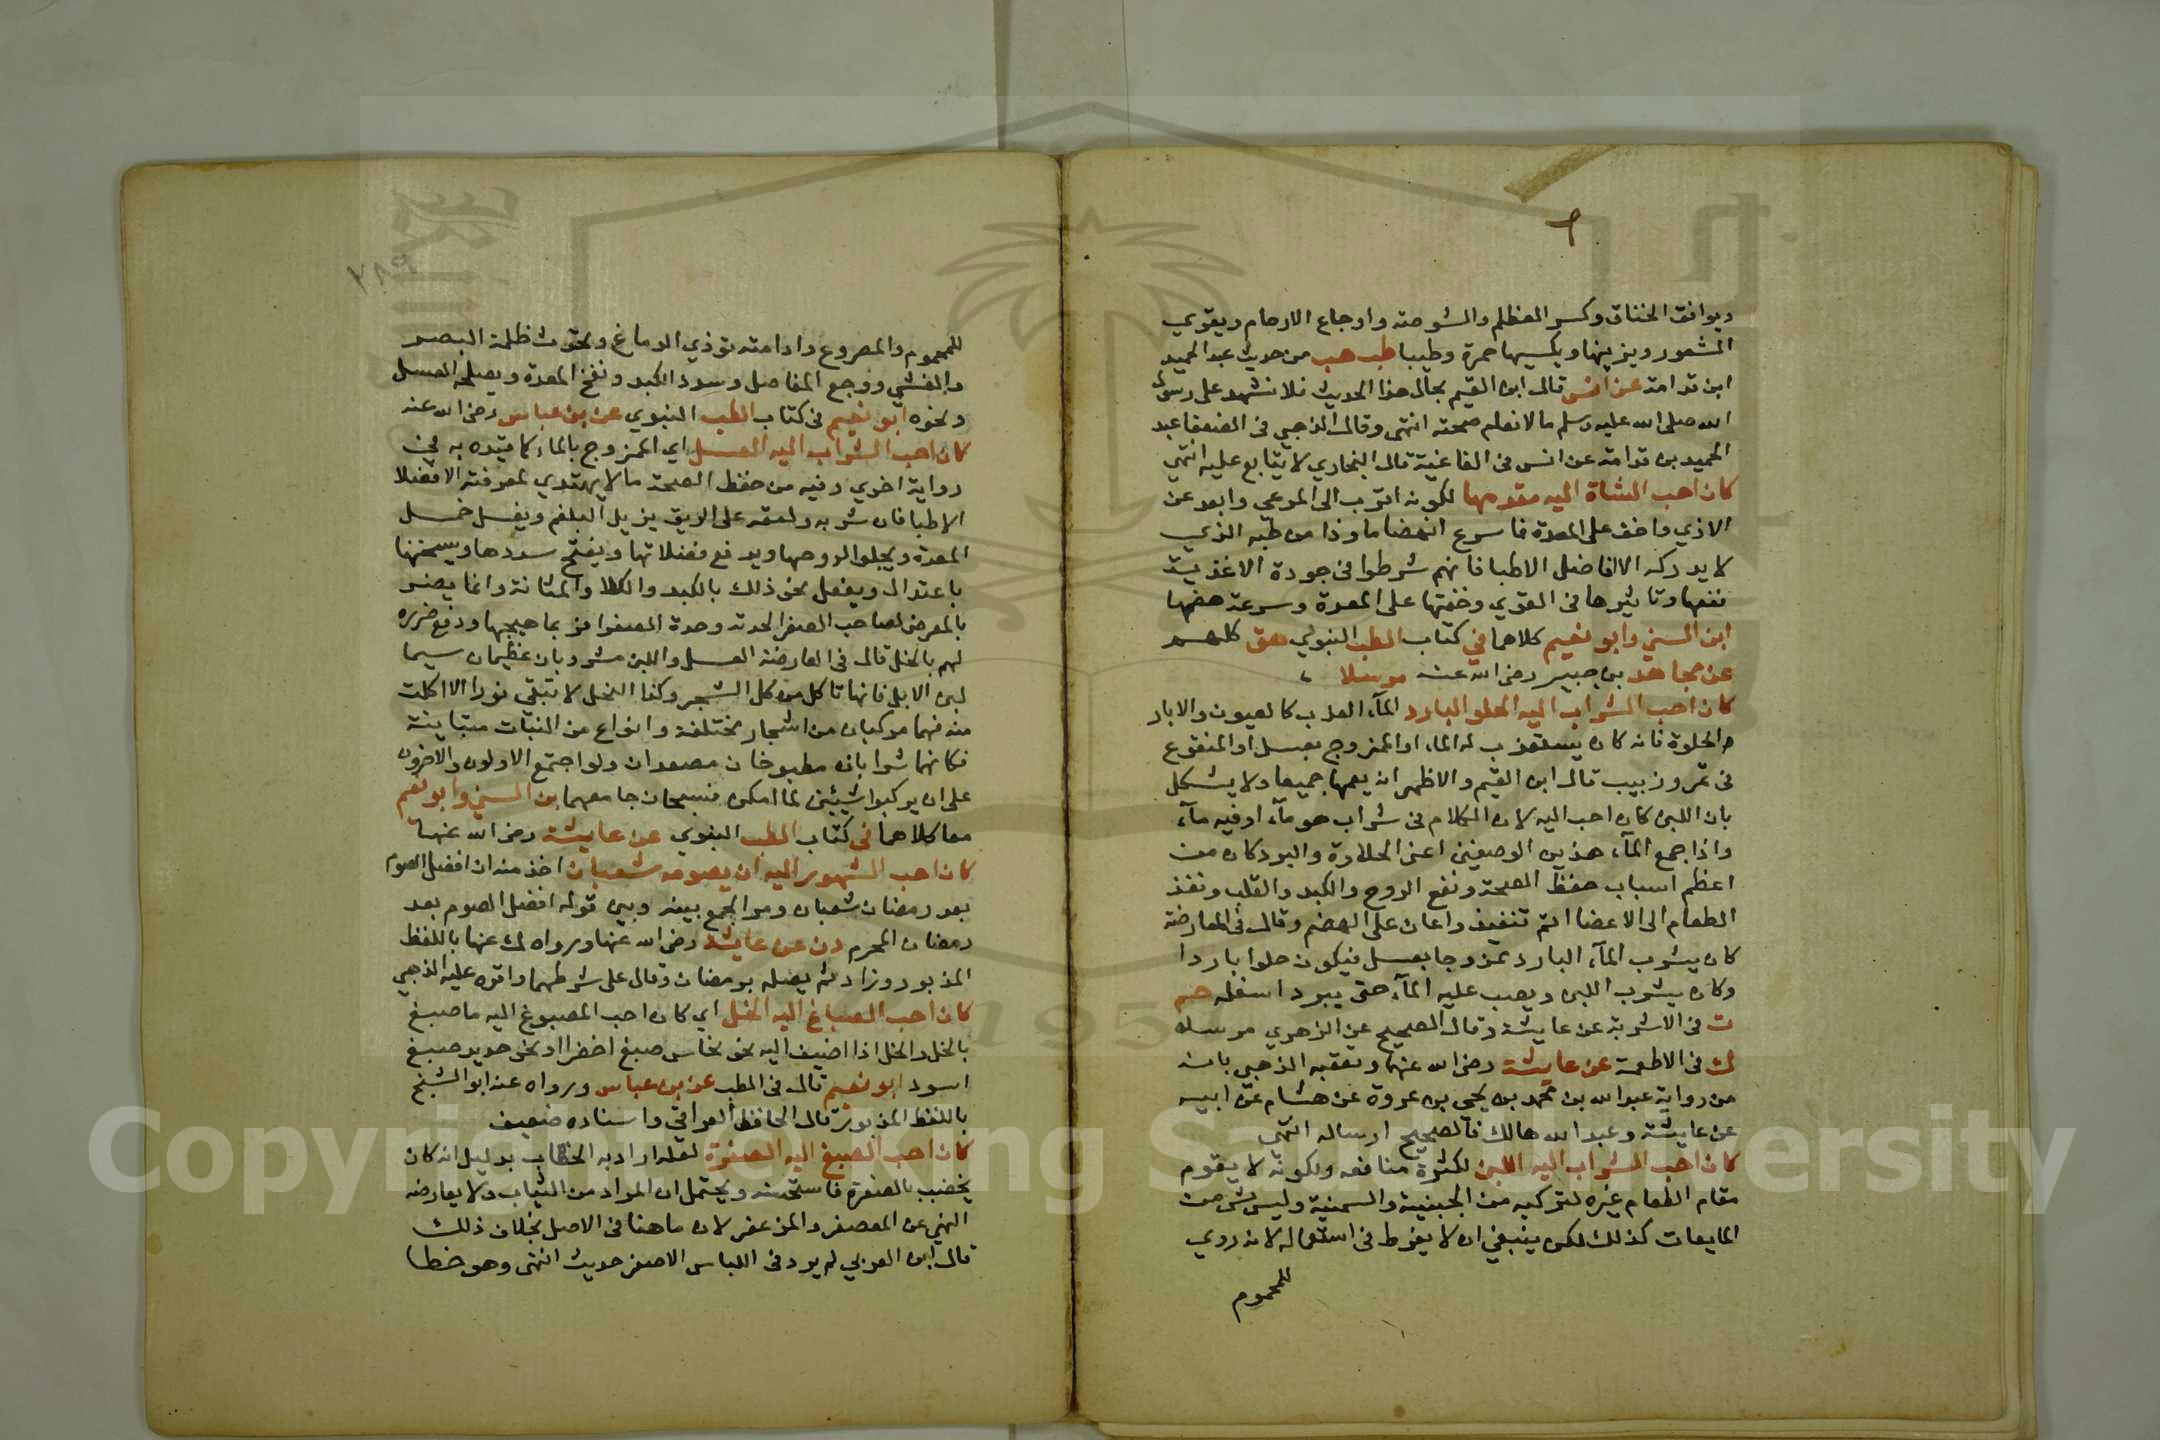 ويوافق الخناق وكسر العظم والشوصة واوجاع الارحام ويقوي
الشعور ويزينها ويكسيها حمرة وطيبا طب هب من حديث عبد الحميد
ابن قدامة عن انس قال ابن القيم بحال هذا الحديث فلا نشهد على رسول
الله صلى الله عليه وسلم ما لا نعلم صحته انتهى وقال الذهبي في الضعفا عبد
الحميد بن قدامة عن انس في الفاغية قال البخاري لا يتابع عليه انتهى
كان احب الشاة اليه مقدمها لكونه اقرب الى المرعي وابعد عن
الاذي واخف على المعدة فاسرع انهضاما وذا من طبه الذي
لا يدركه الا افاضل الاطبا فانهم شرطوا في جودة الاغذية
نفعها وتاثيرها في القوي وخفتها على المعدة وسرعة هضمها
ابن السني وابو نعيم كلاهما في كتاب الطب النبوي هق كلهم
عن مجاهد بن جبير رضي الله عنه مرسلا
كان احب الشراب اليه الحلو البارد المآء العذب كالعيون والابار
الحلوة فانه كان يستعذب له الماء او الممزوج بعسل او المنقوع
في تمر وزبيب قال ابن القيم والاظهر انه يعمها جميعا ولا يشكل
بان اللبن كان احب اليه لان الكلام في شراب هو مآء او فيه مآء
واذا جمع المآء هذين الوصفين اعني الحلاوة والبرد كان من
اعظم اسباب حفظ الصحة ونفع الروح والكبد والقلب ونفذ
الطعام الى الاعضا اتم تنفيذ واعان على الهضم وقال في العارضة
كان يشرب المآء البارد ممزوجا بعسل فيكون حلوا باردا
وكان يشرب اللبن ويصب عليه المآء حتى يبرد اسفله حم
ت في الاشربة عن عايشة وقال الصحيح عن الزهري مرسله
ك في الاطعمة عن عايشة رضي الله عنها وتعقبه الذهبي بانه
من رواية عبد الله بن محمد بن يحي بن عروة عن هشام عن ابيه
عن عايشة وعبد الله هالك فالصحيح ارساله انتهى
كان احب الشراب اليه اللبن لكثرة منافعه ولكونه لا يقوم
مقام الطعام غيره لتركبه من الجبنية والسمنية وليس شي من
المايعات كذلك لكن ينبغي ان لا يفرط في استعماله لانه ردي
للمحموم
للمحموم والمصروع وادامته توذي الدماغ وتحدث ظلمة البصر
والغشي ووجع المفاصل وسدد الكبد ونفخ المعدة ويصلحه العسل
ونحوه ابو نعيم في كتاب الطب النبوي عن بن عباس رضي الله عنه
كان احب الشراب اليه العسل اي الممزوج بالماء كما قيده به في
رواية اخري وفيه من حفظ الصحة ما لا يهتدي لمعرفته الا فضلا
الاطبا فان شربه ولعقه على الريق يزيل البلغم ويغسل خمل
المعدة ويجلوا لزوجها ويدفع فضلاتها ويفتح سددها ويسخنها
باعتدال ويفعل نحو ذلك بالكبد والكلا والمثانة وانما يضر
بالعرض لصاحب الصفرا لحدته وحدة الصفرا فربما هيجها ودفع ضرره
لهم بالخل قال في العارضة العسل واللبن مشروبان عظيمان سيما
لبن الابل فانها تاكل من كل الشجر وكذا النحل لا تبقي نورا الا اكلت
منه فهما مركبان من اشجار مختلفة وانواع من النبات متباينة
فكانهما شرابان مطبوخان مصعدان ولو اجتمع الاولون والاخرون
على ان يركبوا شيئين لما امكن فسبحان جامعهما بن السني وابو نعيم
معا كلاهما في كتاب الطب النبوي عن عايشة رضي الله عنها
كان احب الشهور اليه ان يصومه شعبان اخذ منه ان افضل الصوم
بعد رمضان شعبان ومر الجمع بينه وبين قوله افضل الصوم بعد
رمضان المحرم دن عن عايشة رضي الله عنها ورواه ك عنها باللفظ
المذبور وزاد ثم يصله برمضان وقال على شرطهما واقره عليه الذهبي
كان احب الصباغ اليه الخل اي كان احب المصبوغ اليه ما صبغ
بالخل والخل اذا اضيف اليه نحو نحاس صبغ اخضرا او نحو حديد صبغ
اسود ابو نعيم قال في الطب عن بن عباس ورواه عنه ابو الشيخ
باللفظ المذبور قال الحافظ العراقي واسناده ضعيف
كان احب الصبغ اليه الصفرة لعله اراد به الخضاب بدليل انه كان
يخضب بالصفرة فاستحسنه ويحتمل ان المراد من الثياب ولا يعارضه
النهي عن المعصفر والمزعفر لان ما هنا في الاصل بخلاف ذلك
قال ابن العربي لم يرد في اللباس الاصفر حديث انتهى وهو خطا
٢٨٩
Copyright © King Saud University
1957